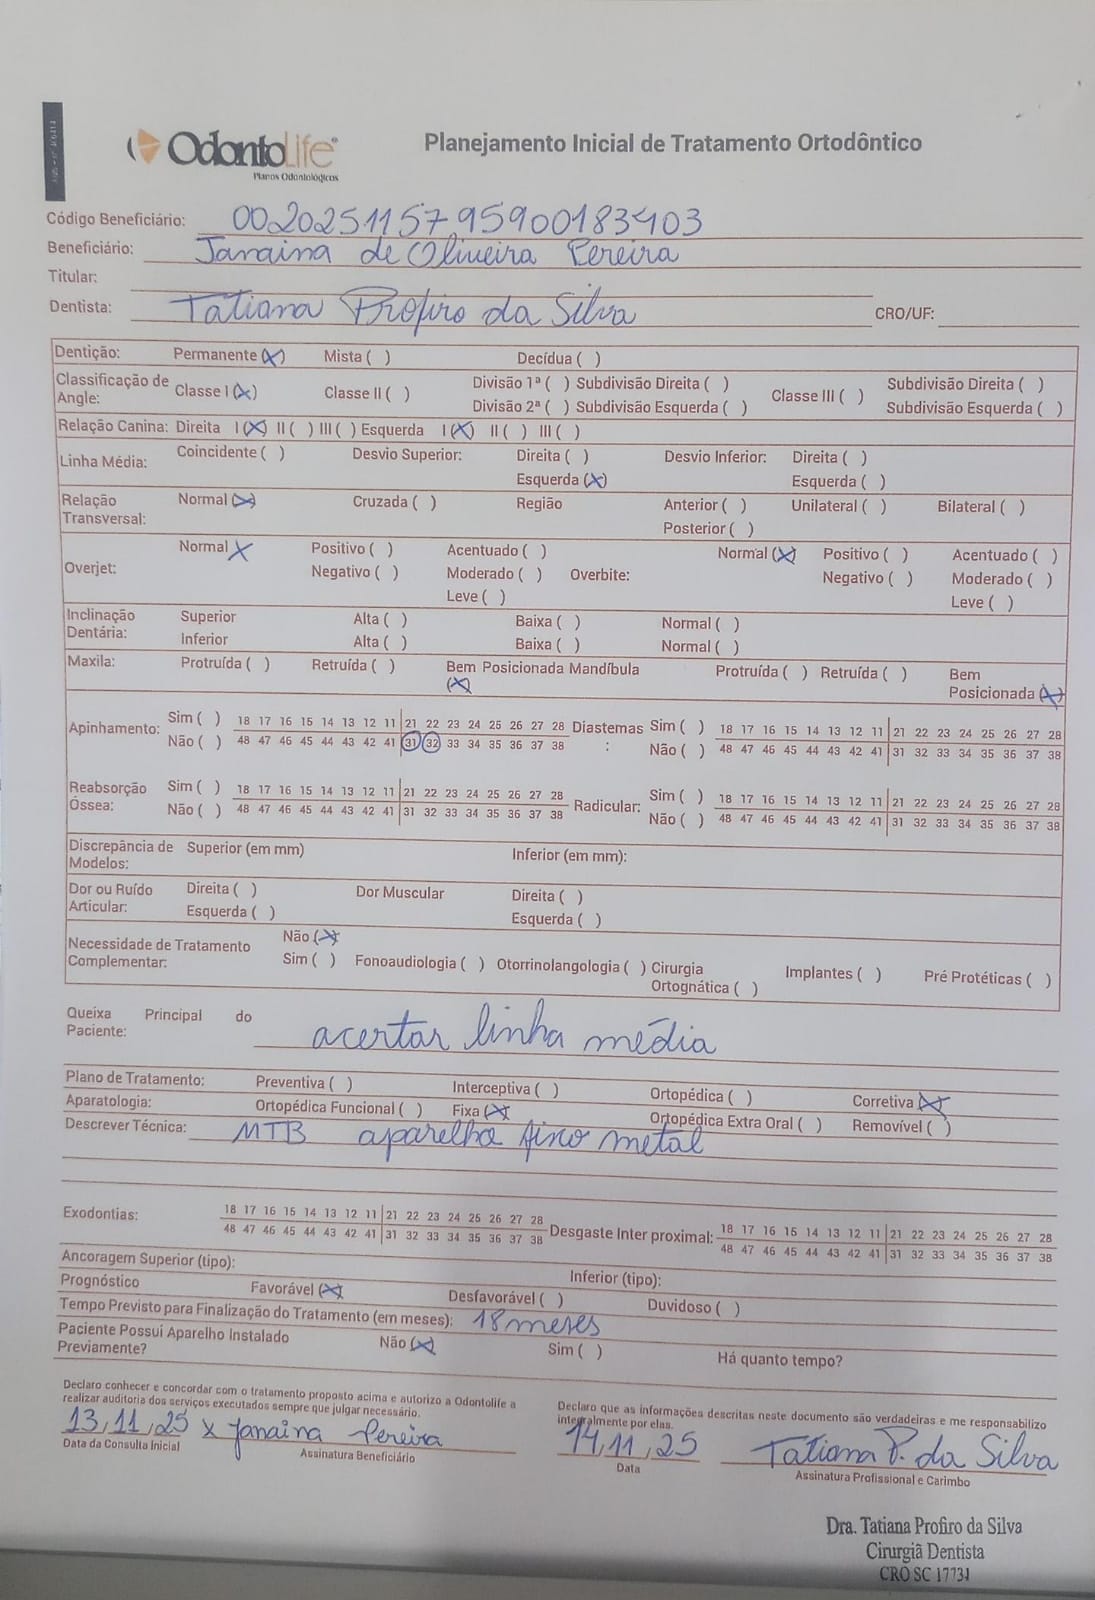 OdontoLife®
Planos Odontológicos
Planejamento Inicial de Tratamento Ortodôntico
Código Beneficiário: 002025115795900183403
Beneficiário: Janaina de Oliveira Pereira
Titular:
Dentista: Tatiana Profiro da Silva CRO/UF:
Dentição: Permanente (X) Mista ( ) Decídua ( )
Classificação de Angle: Classe I (X) Classe II ( ) Divisão 1ª ( ) Subdivisão Direita ( ) Classe III ( ) Subdivisão Direita ( )
Divisão 2ª ( ) Subdivisão Esquerda ( ) Subdivisão Esquerda ( )
Relação Canina: Direita I (X) II ( ) III ( ) Esquerda I (X) II ( ) III ( )
Linha Média: Coincidente ( ) Desvio Superior: Direita ( ) Desvio Inferior: Direita ( )
Esquerda (X) Esquerda ( )
Relação Transversal: Normal (X) Cruzada ( ) Região Anterior ( ) Unilateral ( ) Bilateral ( )
Posterior ( )
Overjet: Normal X Positivo ( ) Acentuado ( ) Overbite: Normal (X) Positivo ( ) Acentuado ( )
Negativo ( ) Moderado ( ) Negativo ( ) Moderado ( )
Leve ( ) Leve ( )
Inclinação Dentária: Superior Alta ( ) Baixa ( ) Normal ( )
Inferior Alta ( ) Baixa ( ) Normal ( )
Maxila: Protruída ( ) Retruída ( ) Bem Posicionada (X) Mandíbula Protruída ( ) Retruída ( ) Bem Posicionada (X)
Apinhamento: Sim ( ) 18 17 16 15 14 13 12 11 21 22 23 24 25 26 27 28 Diastemas: Sim ( ) 18 17 16 15 14 13 12 11 21 22 23 24 25 26 27 28
Não ( ) 48 47 46 45 44 43 42 41 31 32 33 34 35 36 37 38 Não ( ) 48 47 46 45 44 43 42 41 31 32 33 34 35 36 37 38
Reabsorção Óssea: Sim ( ) 18 17 16 15 14 13 12 11 21 22 23 24 25 26 27 28 Radicular: Sim ( ) 18 17 16 15 14 13 12 11 21 22 23 24 25 26 27 28
Não ( ) 48 47 46 45 44 43 42 41 31 32 33 34 35 36 37 38 Não ( ) 48 47 46 45 44 43 42 41 31 32 33 34 35 36 37 38
Discrepância de Modelos: Superior (em mm) Inferior (em mm):
Dor ou Ruído Articular: Direita ( ) Dor Muscular Direita ( )
Esquerda ( ) Esquerda ( )
Necessidade de Tratamento Complementar: Não (X)
Sim ( ) Fonoaudiologia ( ) Otorrinolangologia ( ) Cirurgia Ortognática ( ) Implantes ( ) Pré Protéticas ( )
Queixa Principal do Paciente: acertar linha média
Plano de Tratamento: Preventiva ( ) Interceptiva ( ) Ortopédica ( ) Corretiva (X)
Aparatologia: Ortopédica Funcional ( ) Fixa (X) Ortopédica Extra Oral ( ) Removível ( )
Descrever Técnica: MTB aparelho fixo metal
Exodontias: 18 17 16 15 14 13 12 11 21 22 23 24 25 26 27 28 Desgaste Inter proximal: 18 17 16 15 14 13 12 11 21 22 23 24 25 26 27 28
48 47 46 45 44 43 42 41 31 32 33 34 35 36 37 38 48 47 46 45 44 43 42 41 31 32 33 34 35 36 37 38
Ancoragem Superior (tipo): Inferior (tipo):
Prognóstico Favorável (X) Desfavorável ( ) Duvidoso ( )
Tempo Previsto para Finalização do Tratamento (em meses): 18 meses
Paciente Possui Aparelho Instalado Previamente? Não (X) Sim ( ) Há quanto tempo?
Declaro conhecer e concordar com o tratamento proposto acima e autorizo a Odontolife a
realizar auditoria dos serviços executados sempre que julgar necessário.
13/11/25 x Janaina Pereira
Data da Consulta Inicial Assinatura Beneficiário
Declaro que as informações descritas neste documento são verdadeiras e me responsabilizo
integralmente por elas.
14/11/25 Tatiana P. da Silva
Data Assinatura Profissional e Carimbo
Dra. Tatiana Profiro da Silva
Cirurgiã Dentista
CRO SC 17731